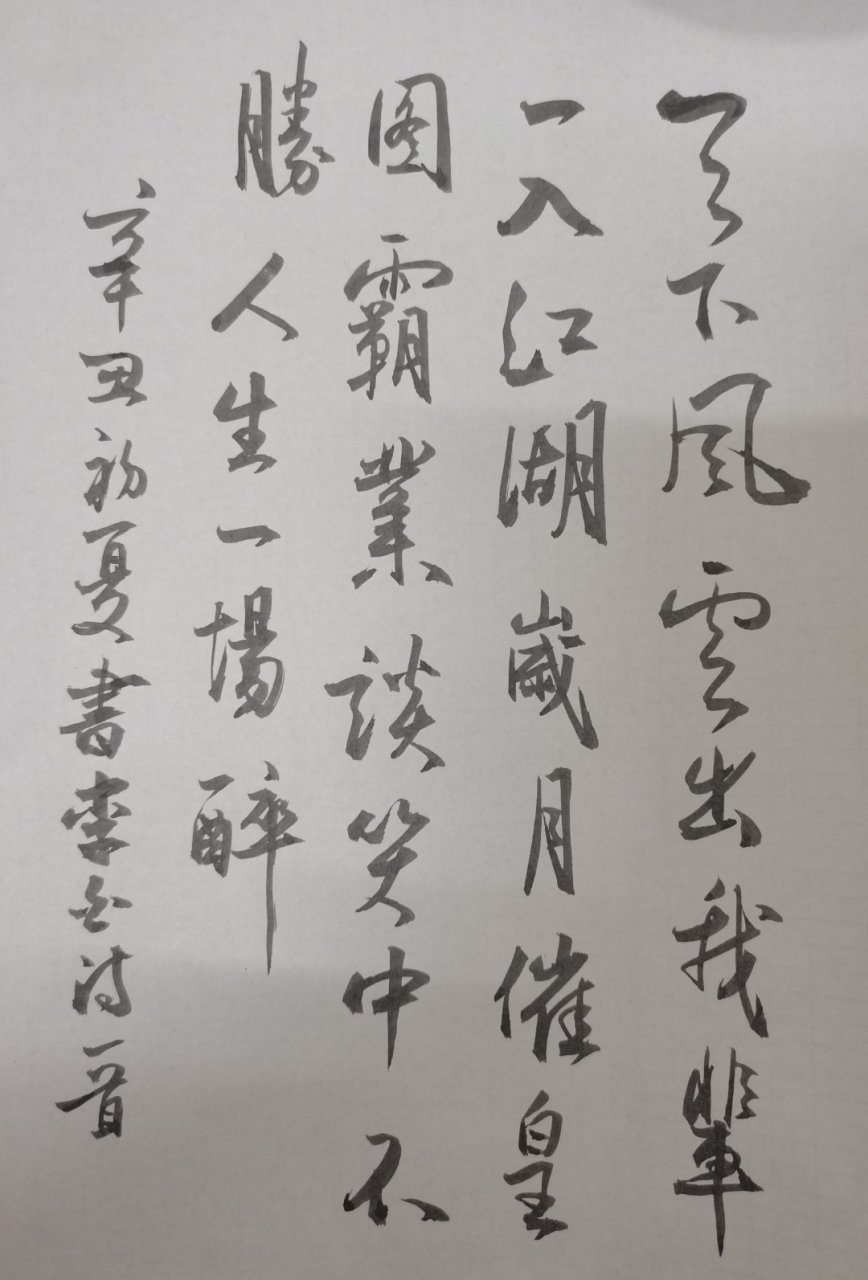 天下風雲出我輩
一入江湖歲月催皇
图霸業談笑中不
勝人生一場醉
辛丑初夏書李白诗一首